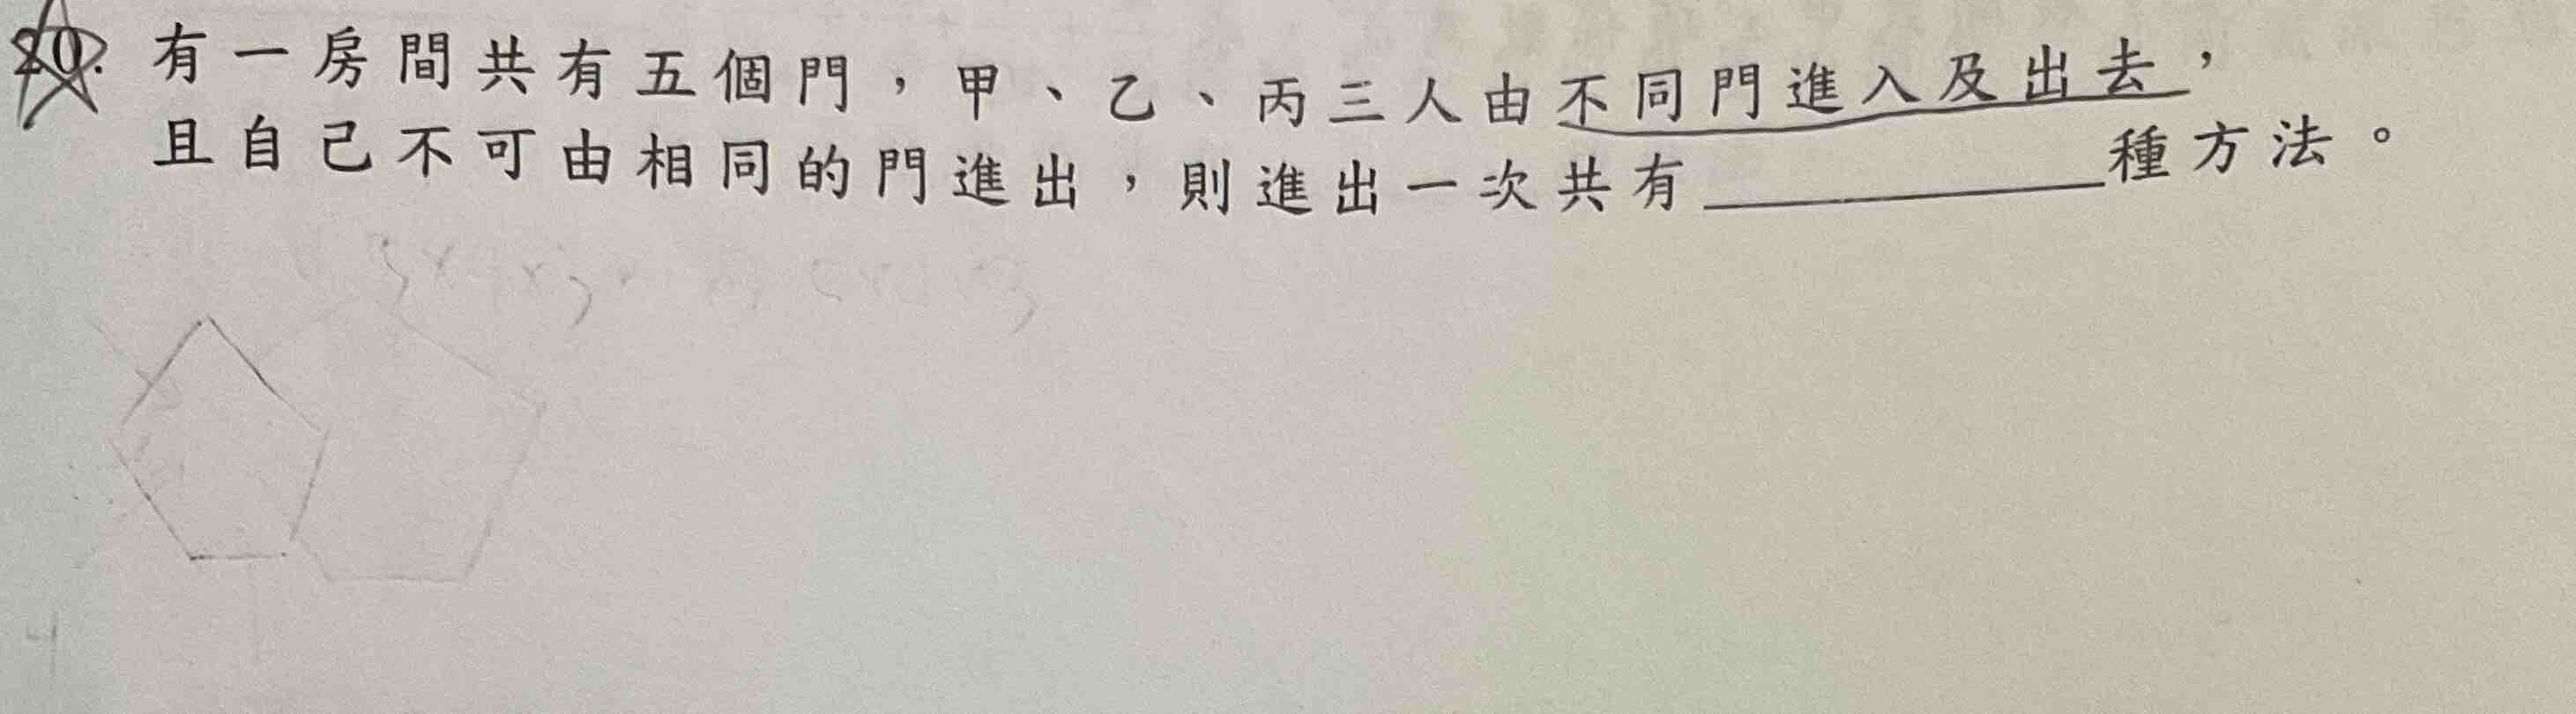 20. 有一房間共有五個門，甲、乙、丙三人由不同門進入及出去，
且自己不可由相同的門進出，則進出一次共有＿＿＿＿＿種方法。